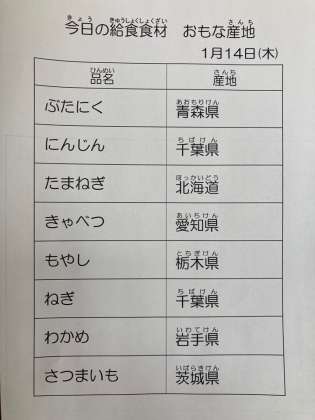 今日の給食食材 おもな産地
1月14日(木)
品名 産地
ぶたにく 青森県
にんじん 千葉県
たまねぎ 北海道
きゃべつ 愛知県
もやし 栃木県
ねぎ 千葉県
わかめ 岩手県
さつまいも 茨城県